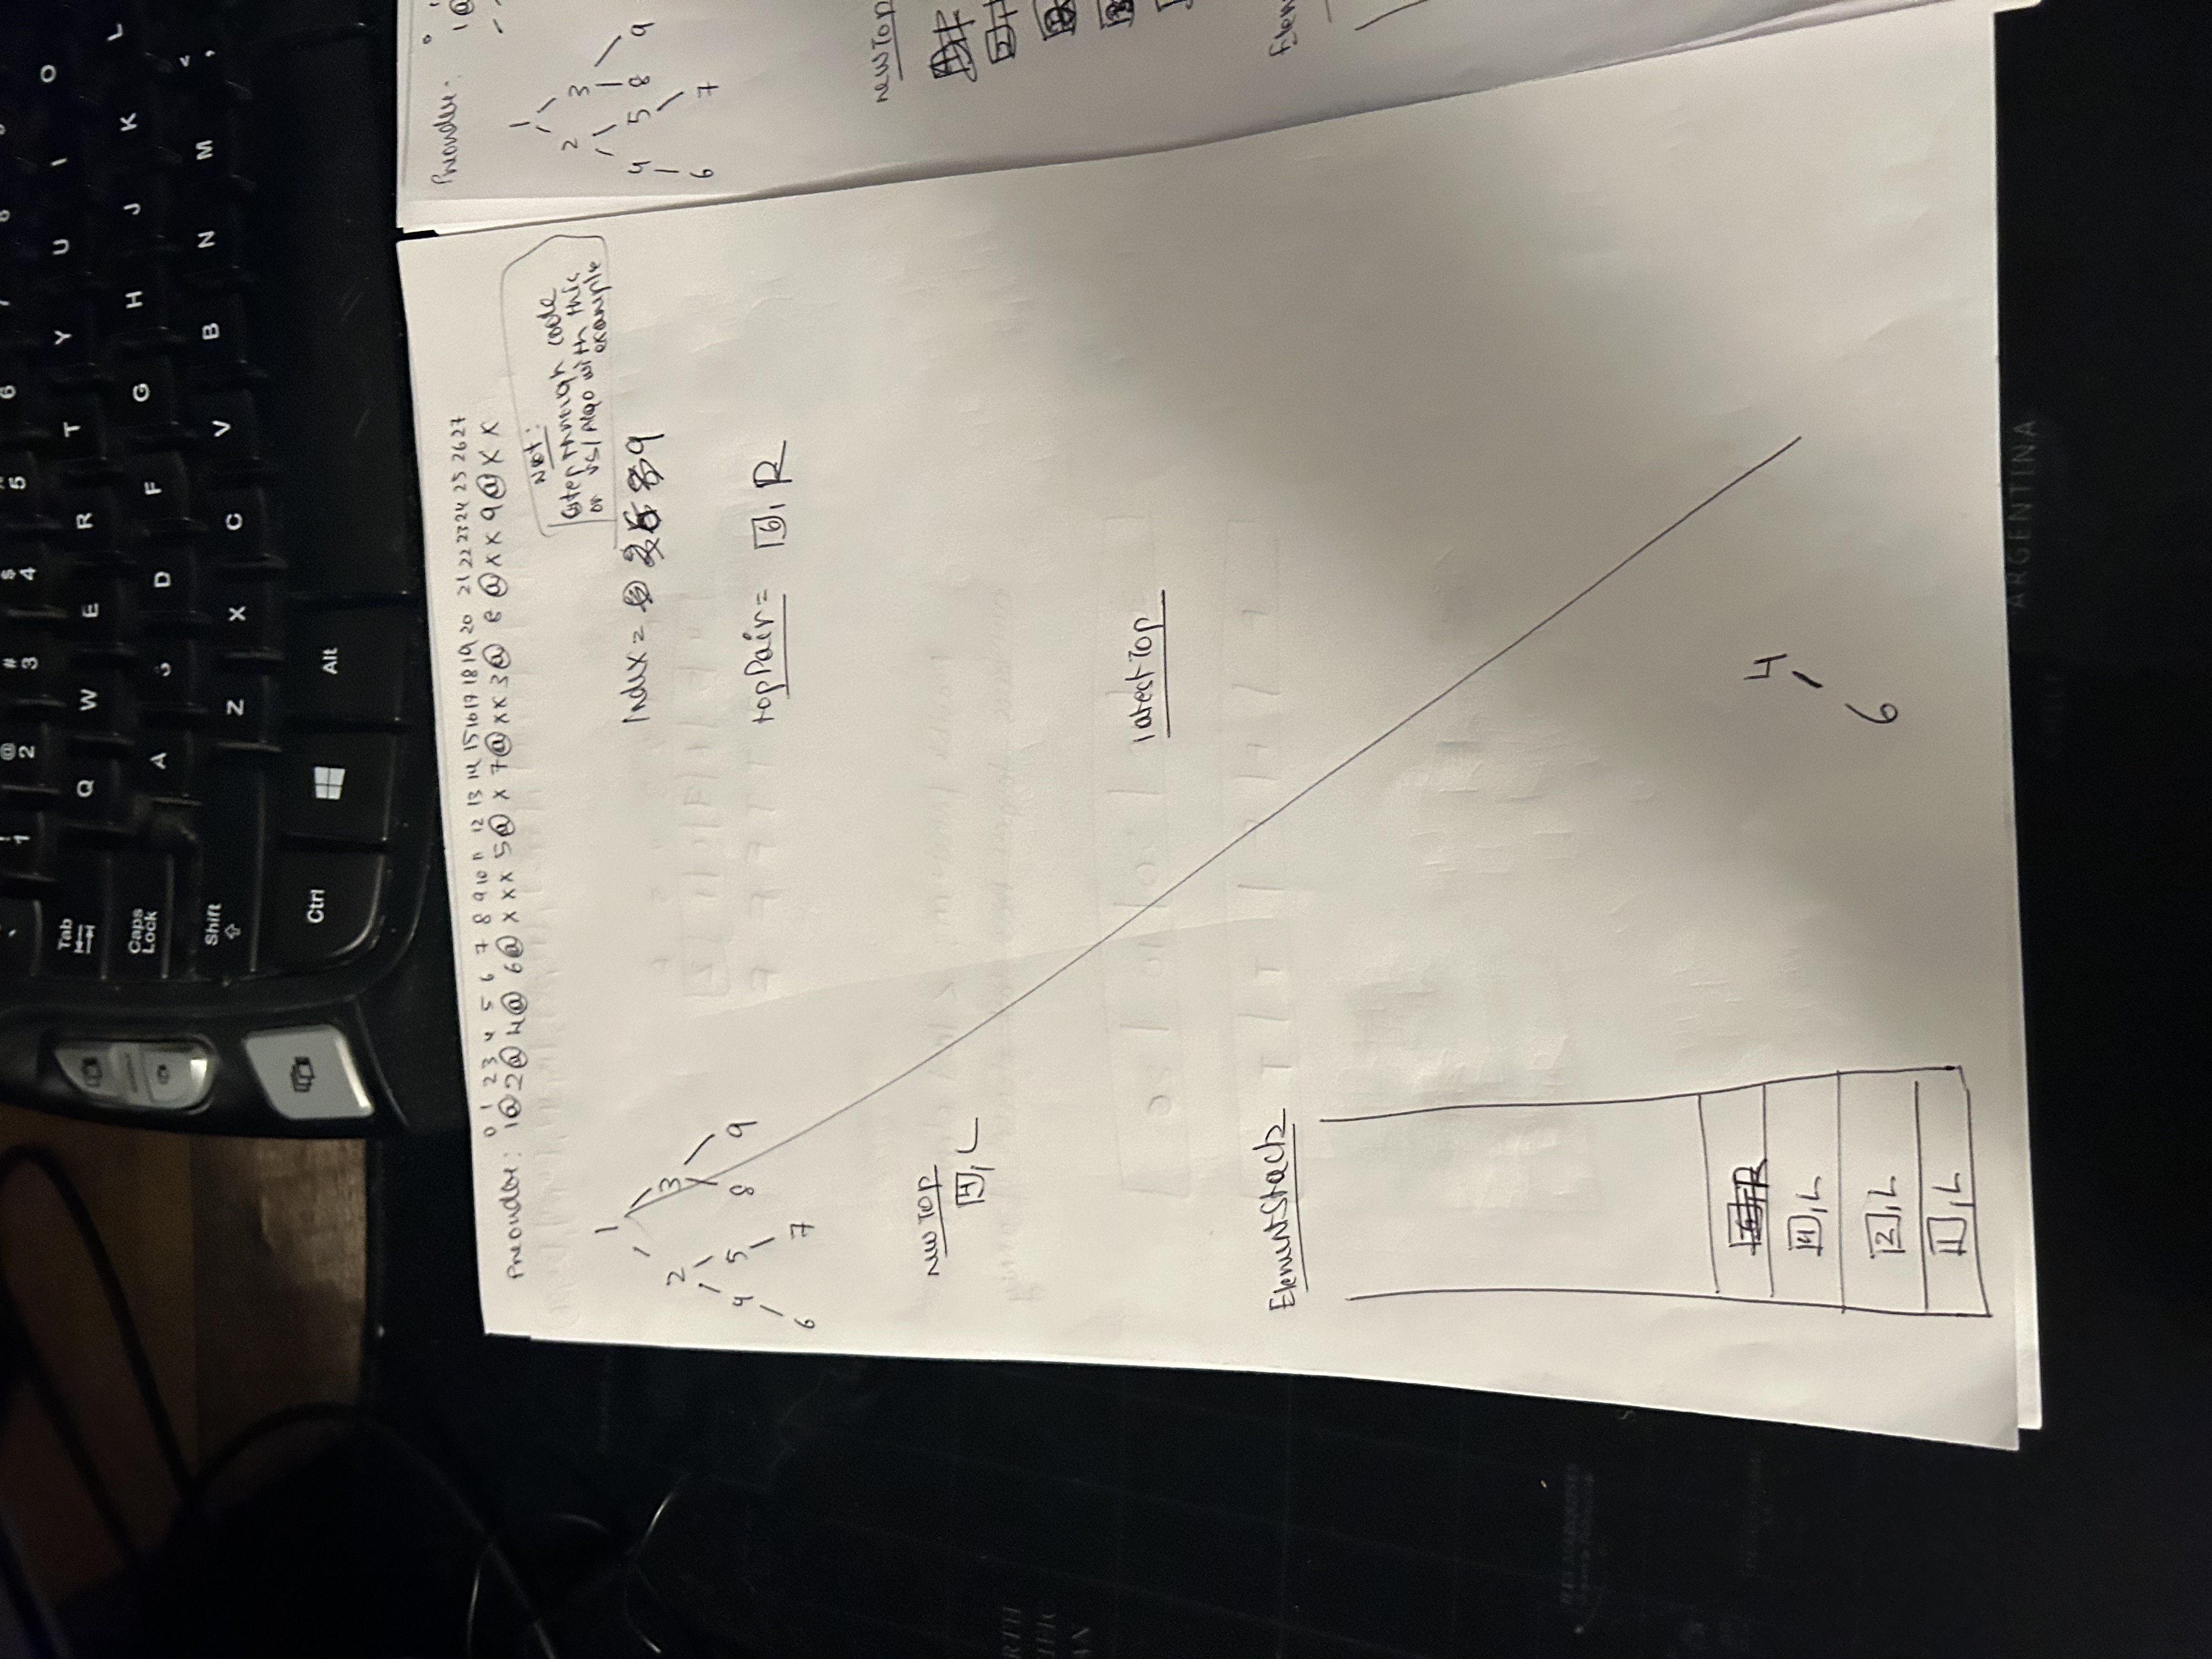 `
! 1
@ 2
# 3
$ 4
% 5
6
Tab
Q W E R T Y U I O
Caps Lock
A S D F G H J K L
Shift
Z X C V B N M < ,
Ctrl
Alt
0 1 2 3 4 5 6 7 8 9 10 11 12 13 14 15 16 17 18 19 20 21 22 23 24 25 26 27
Preorder: 1@ 2@ 4@ 6@ x x x 5@ x 7@ x x 3@ 8 @ x x 9 @ x x
Not:
step through code
on VS/Algo with this
example
1
2 3
4 5 8 9
6 7
Index = 9
topPair = 6, R
new Top
4, L
latestTop
ElementStack
6, R
4, L
2, L
1, L
4
6
Preorder:
0
1@
1
2 3
4 5 8 9
6 7
newTop
Elem
ARGENTINA